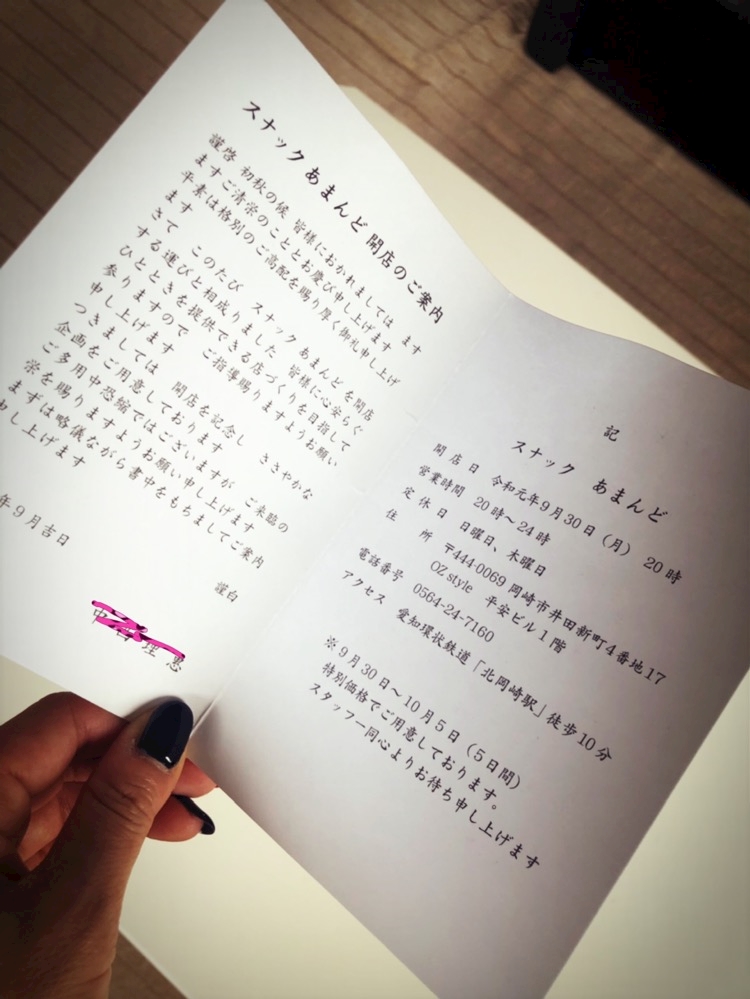 スナック あまんど 開店のご案内
謹啓 初秋の候 皆様におかれましては ます
ますご清栄のこととお慶び申し上げます
平素は格別のご高配を賜り厚く御礼申し上げ
ます
さて このたび スナック あまんどを開店
する運びと相成りました 皆様に心安らぐ
ひとときを提供できる店づくりを目指して
参りますので ご指導賜りますようお願い
申し上げます
つきましては 開店を記念し ささやかな
企画をご用意しております
ご多用中恐縮ではございますが ご来臨の
栄を賜りますようお願い申し上げます
まずは略儀ながら書中をもちましてご案内
申し上げます
謹白
年9月吉日
理恵
記
スナック あまんど
開店日 令和元年9月30日(月) 20時
営業時間 20時〜24時
定休日 日曜日、木曜日
住所 〒444-0069 岡崎市井田新町4番地17
OZ style 平安ビル1階
電話番号 0564-24-7160
アクセス 愛知環状鉄道「北岡崎駅」徒歩10分
※9月30日〜10月5日(5日間)
特別価格でご用意しております。
スタッフ一同心よりお待ち申し上げます